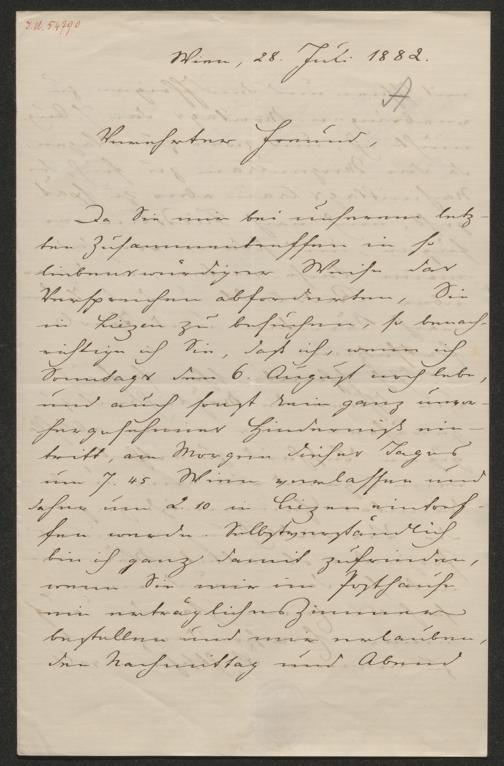 J.N. 54790
Wien, 28. Juli 1882.
A
Verehrter Freund,
Da Sie mir bei unserem letz-
ten Zusammentreffen in so
liebenswürdiger Weise das
Versprechen abforderten, Sie
in Liezen zu besuchen, so benach-
richtige ich Sie, daß ich, wenn ich
Sonntags den 6. August noch lebe,
und auch sonst kein ganz unvor-
hergesehenes Hinderniß ein-
tritt, am Morgen dieses Tages
um 7. 45 Wien verlassen und
daher um 2. 10 in Liezen eintref-
fen werde. Selbstverständlich
bin ich ganz damit zufrieden,
wenn Sie mir im Posthause
ein erträgliches Zimmer
bestellen und mir erlauben,
den Nachmittag und Abend